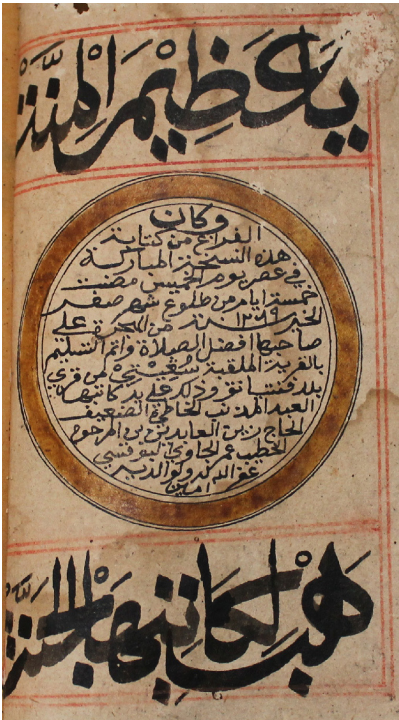 يا عظيم المنة
وكان
الفراغ من كتابة
هذه النسخة المباركة
في عصر يوم الخميس مضت
خمسة ايام من طلوع شهر صفر
الخير ١٣٦٩ سنة من الهجرة على
صاحبها افضل الصلاة واتم التسليم
بالقرية الملقبة من قري
وذلك على يد كاتبها
العبد المذنب الخاطي الضعيف
الحاج زين العابدين بن المرحوم
الخطيب عمر الحاوي
غفر الله له ولوالديه
امين
هب لكاتبها الجنة